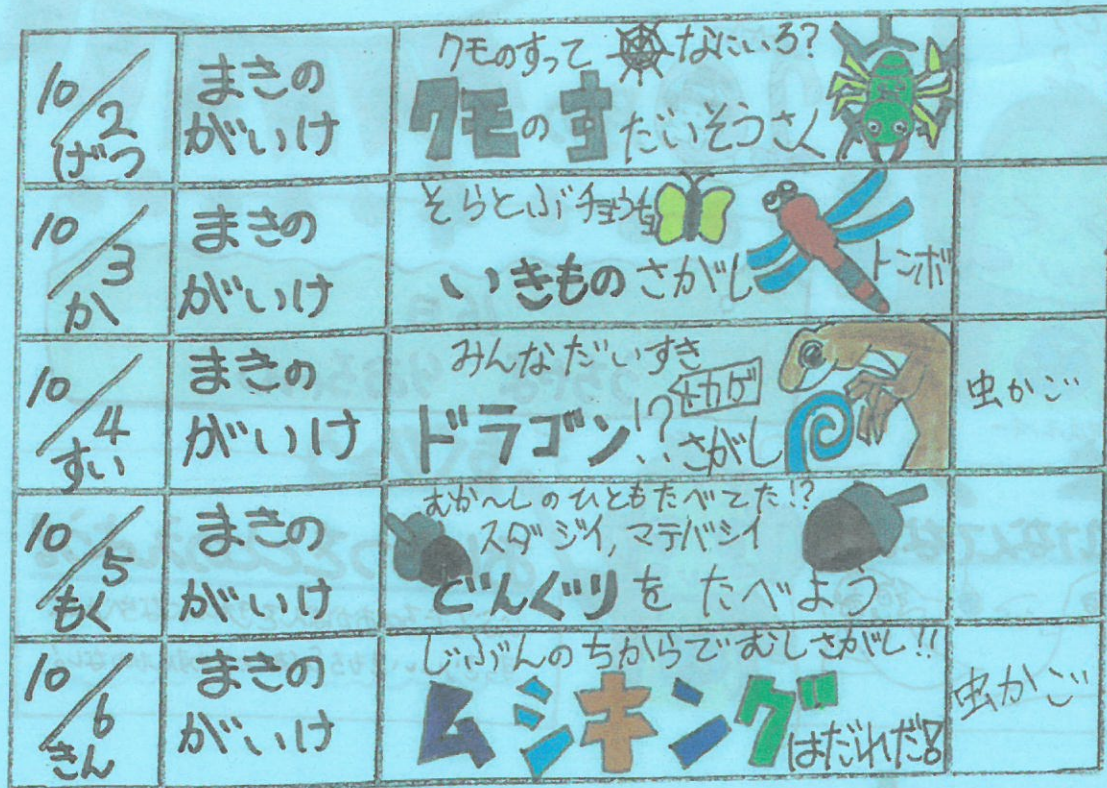 10/2
げつ
まきの
がいけ
クモのすって なにいろ?
クモのす だいそうさく
10/3
か
まきの
がいけ
そらとぶチョウも
いきものさがし
トンボ
10/4
すい
まきの
がいけ
みんなだいすき
ドラゴン!?さがし
トカゲ
虫かご
10/5
もく
まきの
がいけ
むか〜しのひともたべてた!?
スダジイ,マテバシイ
どんぐりをたべよう
10/6
きん
まきの
がいけ
じぶんのちからでむしさがし!!
ムシキングはだれだ!
虫かご